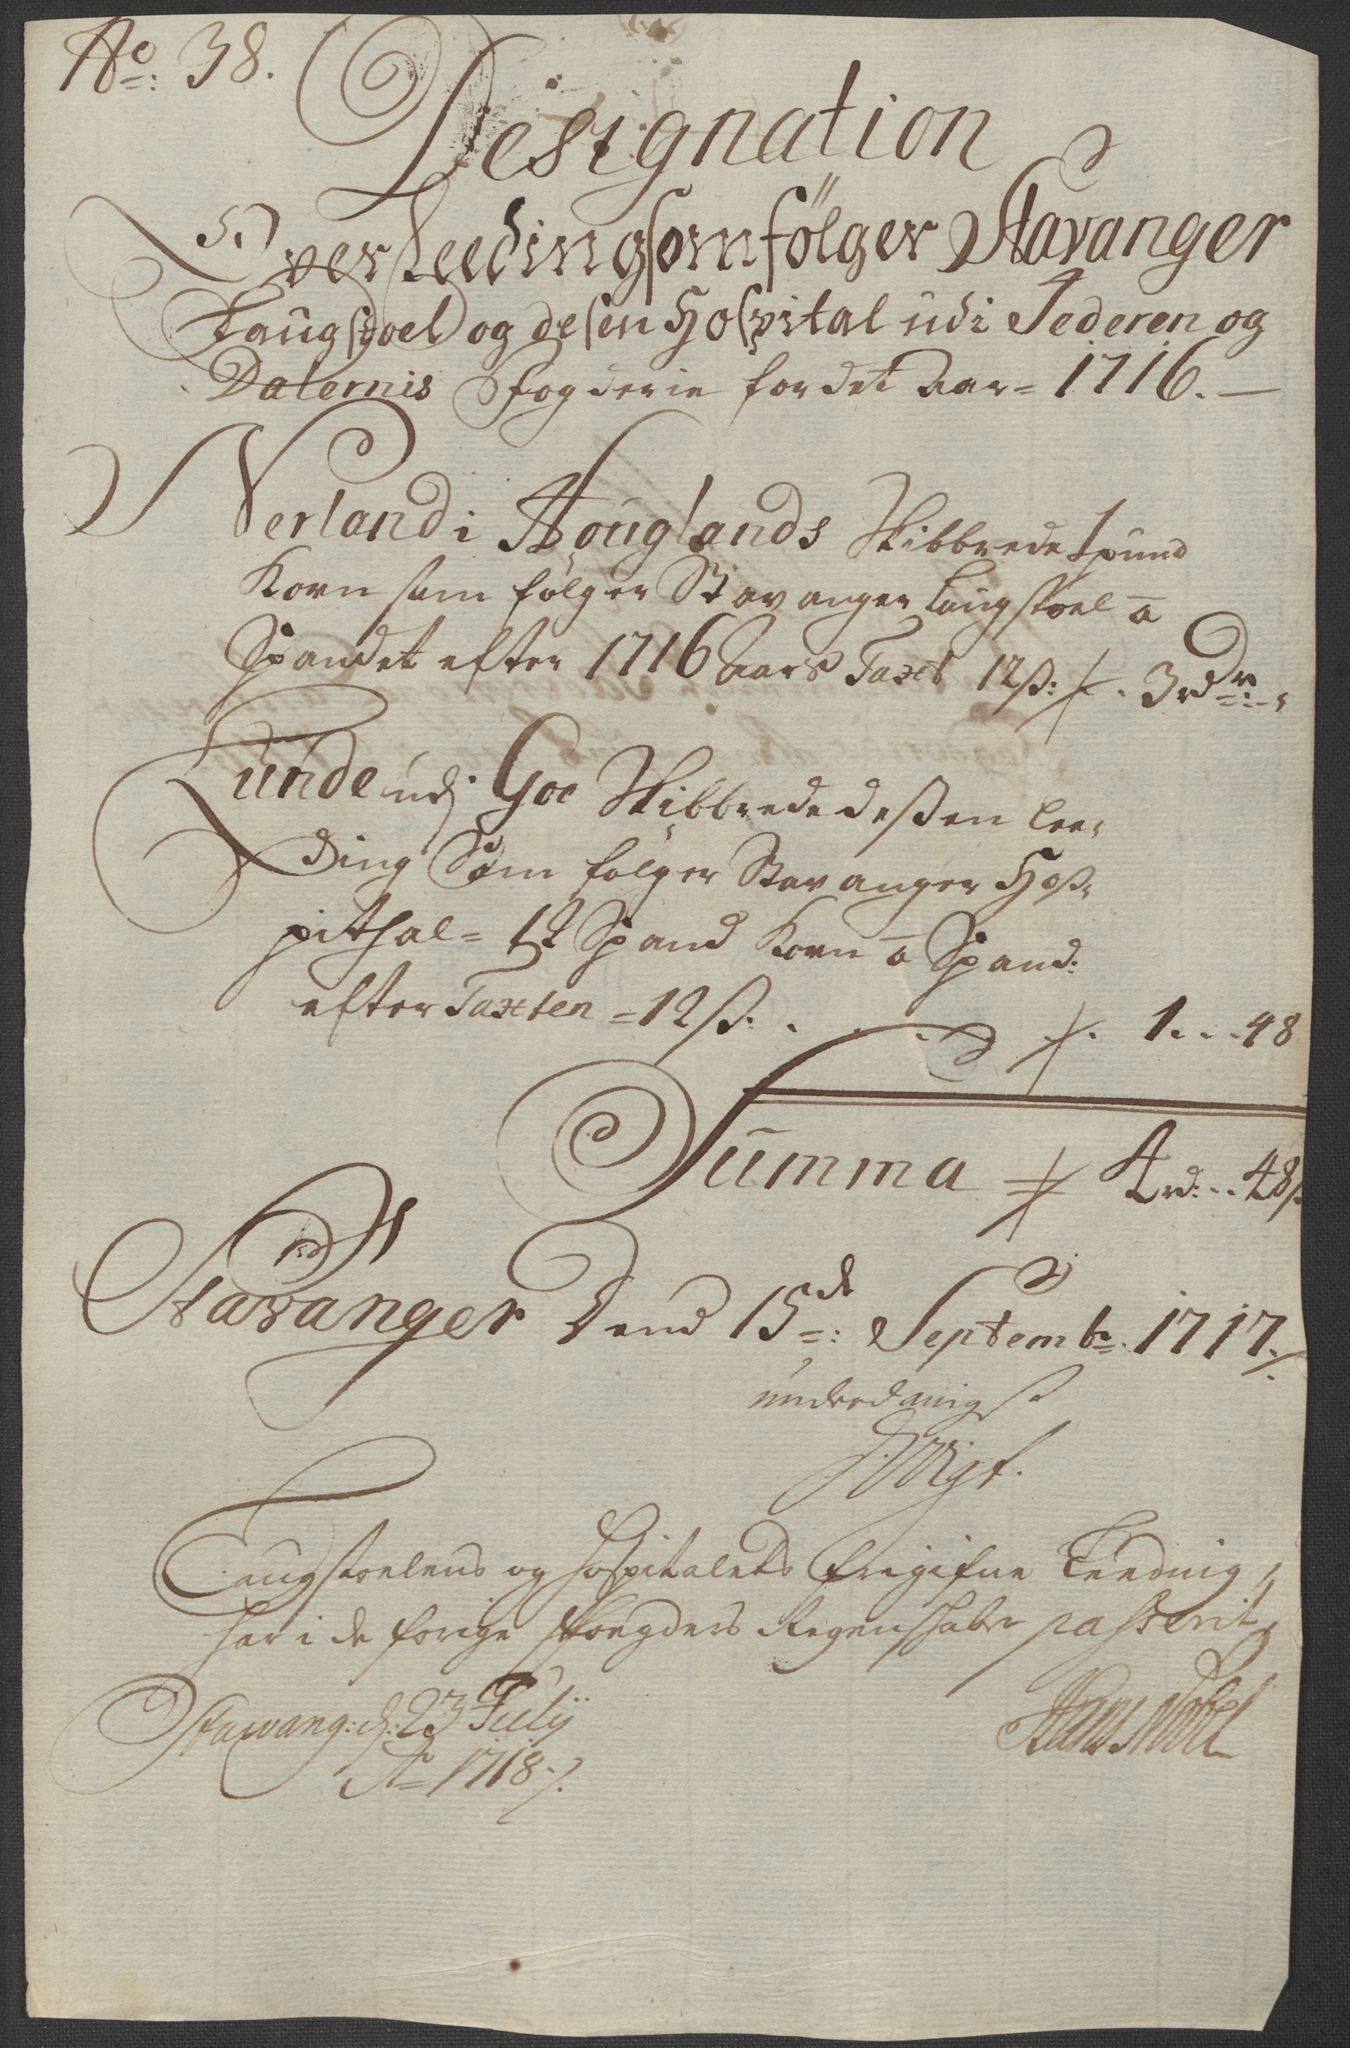 No: 38.
Designation
Over Leedingsom fölger Stavanger
Laugstoel og desen Hospital udi Jederen og
Dalernis Fogderie for det Aar= 1716.
Nerland i Houglands Skibbrede 1 pund
Korn som følger Stavanger Laugstoel a
Spandet efter 1716 Aars Taxt 12 ß: 3 rdr:
Lunde udj Goe Skibbrede desßen Lee-
ding Som følger Stavanger Hos-
pithal= 12 Spand Korn a Spand:
efter Taxten = 12 ß. 1. . . 48
Summa 4 rd: . . 48 ß
Stavanger Dend 15de: Septembr. 1717.
underdanigst
Laugstoelens og Hospitalets frigifne Leeding,
har i de forige Fogders Regenskaber passerit,
Stavang: d: 23 Julij
Ao 1718.
Hans Nobel